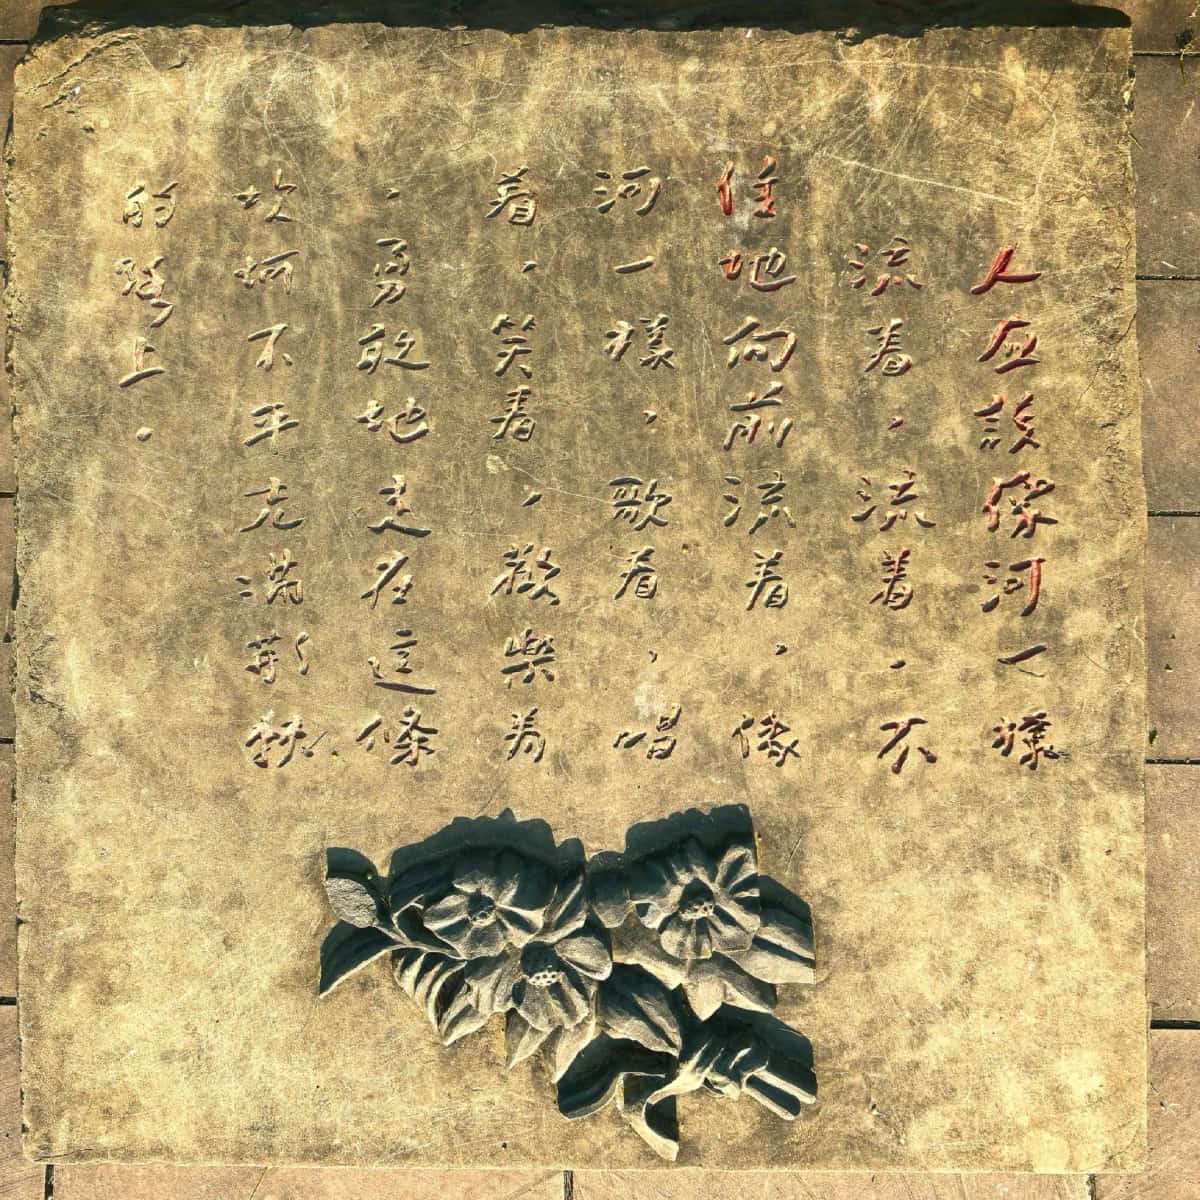 人应該像河一樣
流着，流着，不
住地向前流着，像
河一樣，歌着，唱
着，笑着，歡樂着
，勇敢地走在這條
坎坷不平充滿荊棘
的路上。